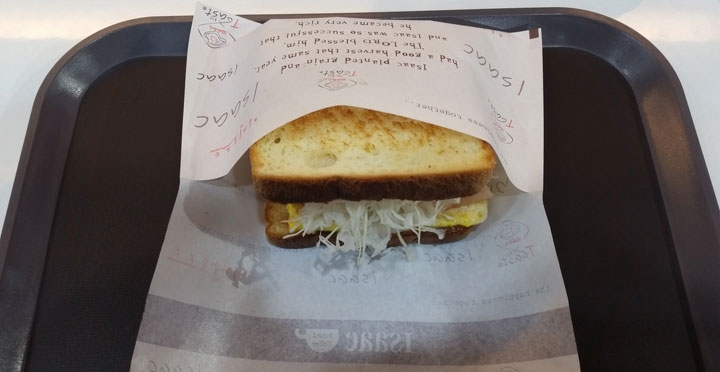 Isaac planted grain and
had a good harvest that same year.
The LORD blessed him,
and Isaac was so successful that
he became very rich.
Toast
Toast
ISAAC
ISAAC
ISAAC
ISAAC
together..
Toast
Toast
Isaac
Isaac
the happiness together..
Isaac